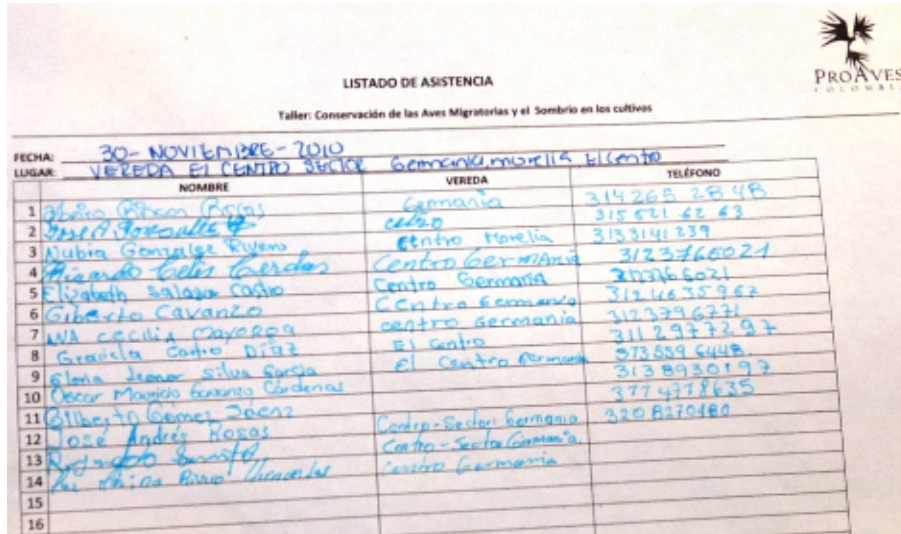 PROAVES
COLOMBIA
LISTADO DE ASISTENCIA
Taller: Conservación de las Aves Migratorias y el Sombrio en los cultivos
FECHA: 30-NOVIEMBRE-2010
LUGAR: VEREDA El CENTRO SECTOR Germania, morelia, El Centro
NOMBRE VEREDA TELÉFONO
1 Rincon Rojas Germania 314 265 28 48
2 José 315 621 62 63
3 Nubia Gonzalez Rivero Centro Morelia 3133141239
4 Ricardo Celis Centro GerMAnia 3123765021
5 Elizabeth Salazar Castro Centro Germania
6 Giberto Cavanzo Centro Germania 3124635967
7 ANA cecilia Mayorga centro Germania 3123796771
8 Graciela Castro Díaz El Centro 3112977297
9 Gloria Leonor Silva García El Centro Germania 313 559 6448
10 Oscar Mauricio Cárdenas 3138930197
11 Gilberto Gómez Jaenz 3774778635
12 José Andrés Rosas Centro-Sector Germania 3208270480
13 Centro-Sector Germania
14 Rivero Centro Germania
15
16